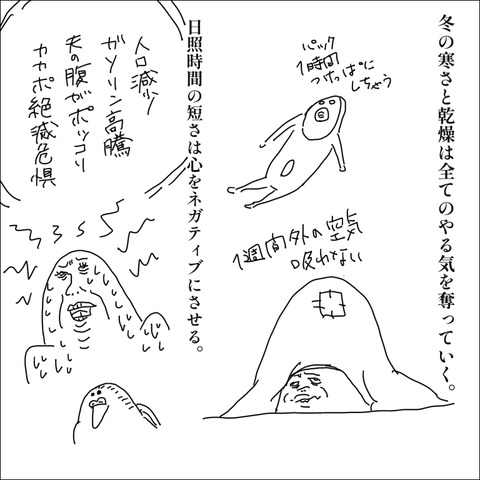 冬の寒さと乾燥は全てのやる気を奪っていく。
パック
1時間
つけっぱに
しちゃう
1週間外の空気
吸わない
日照時間の短さは心をネガティブにさせる。
人口減少
ガソリン高騰
夫の腹がポッコリ
カカポ絶滅危惧